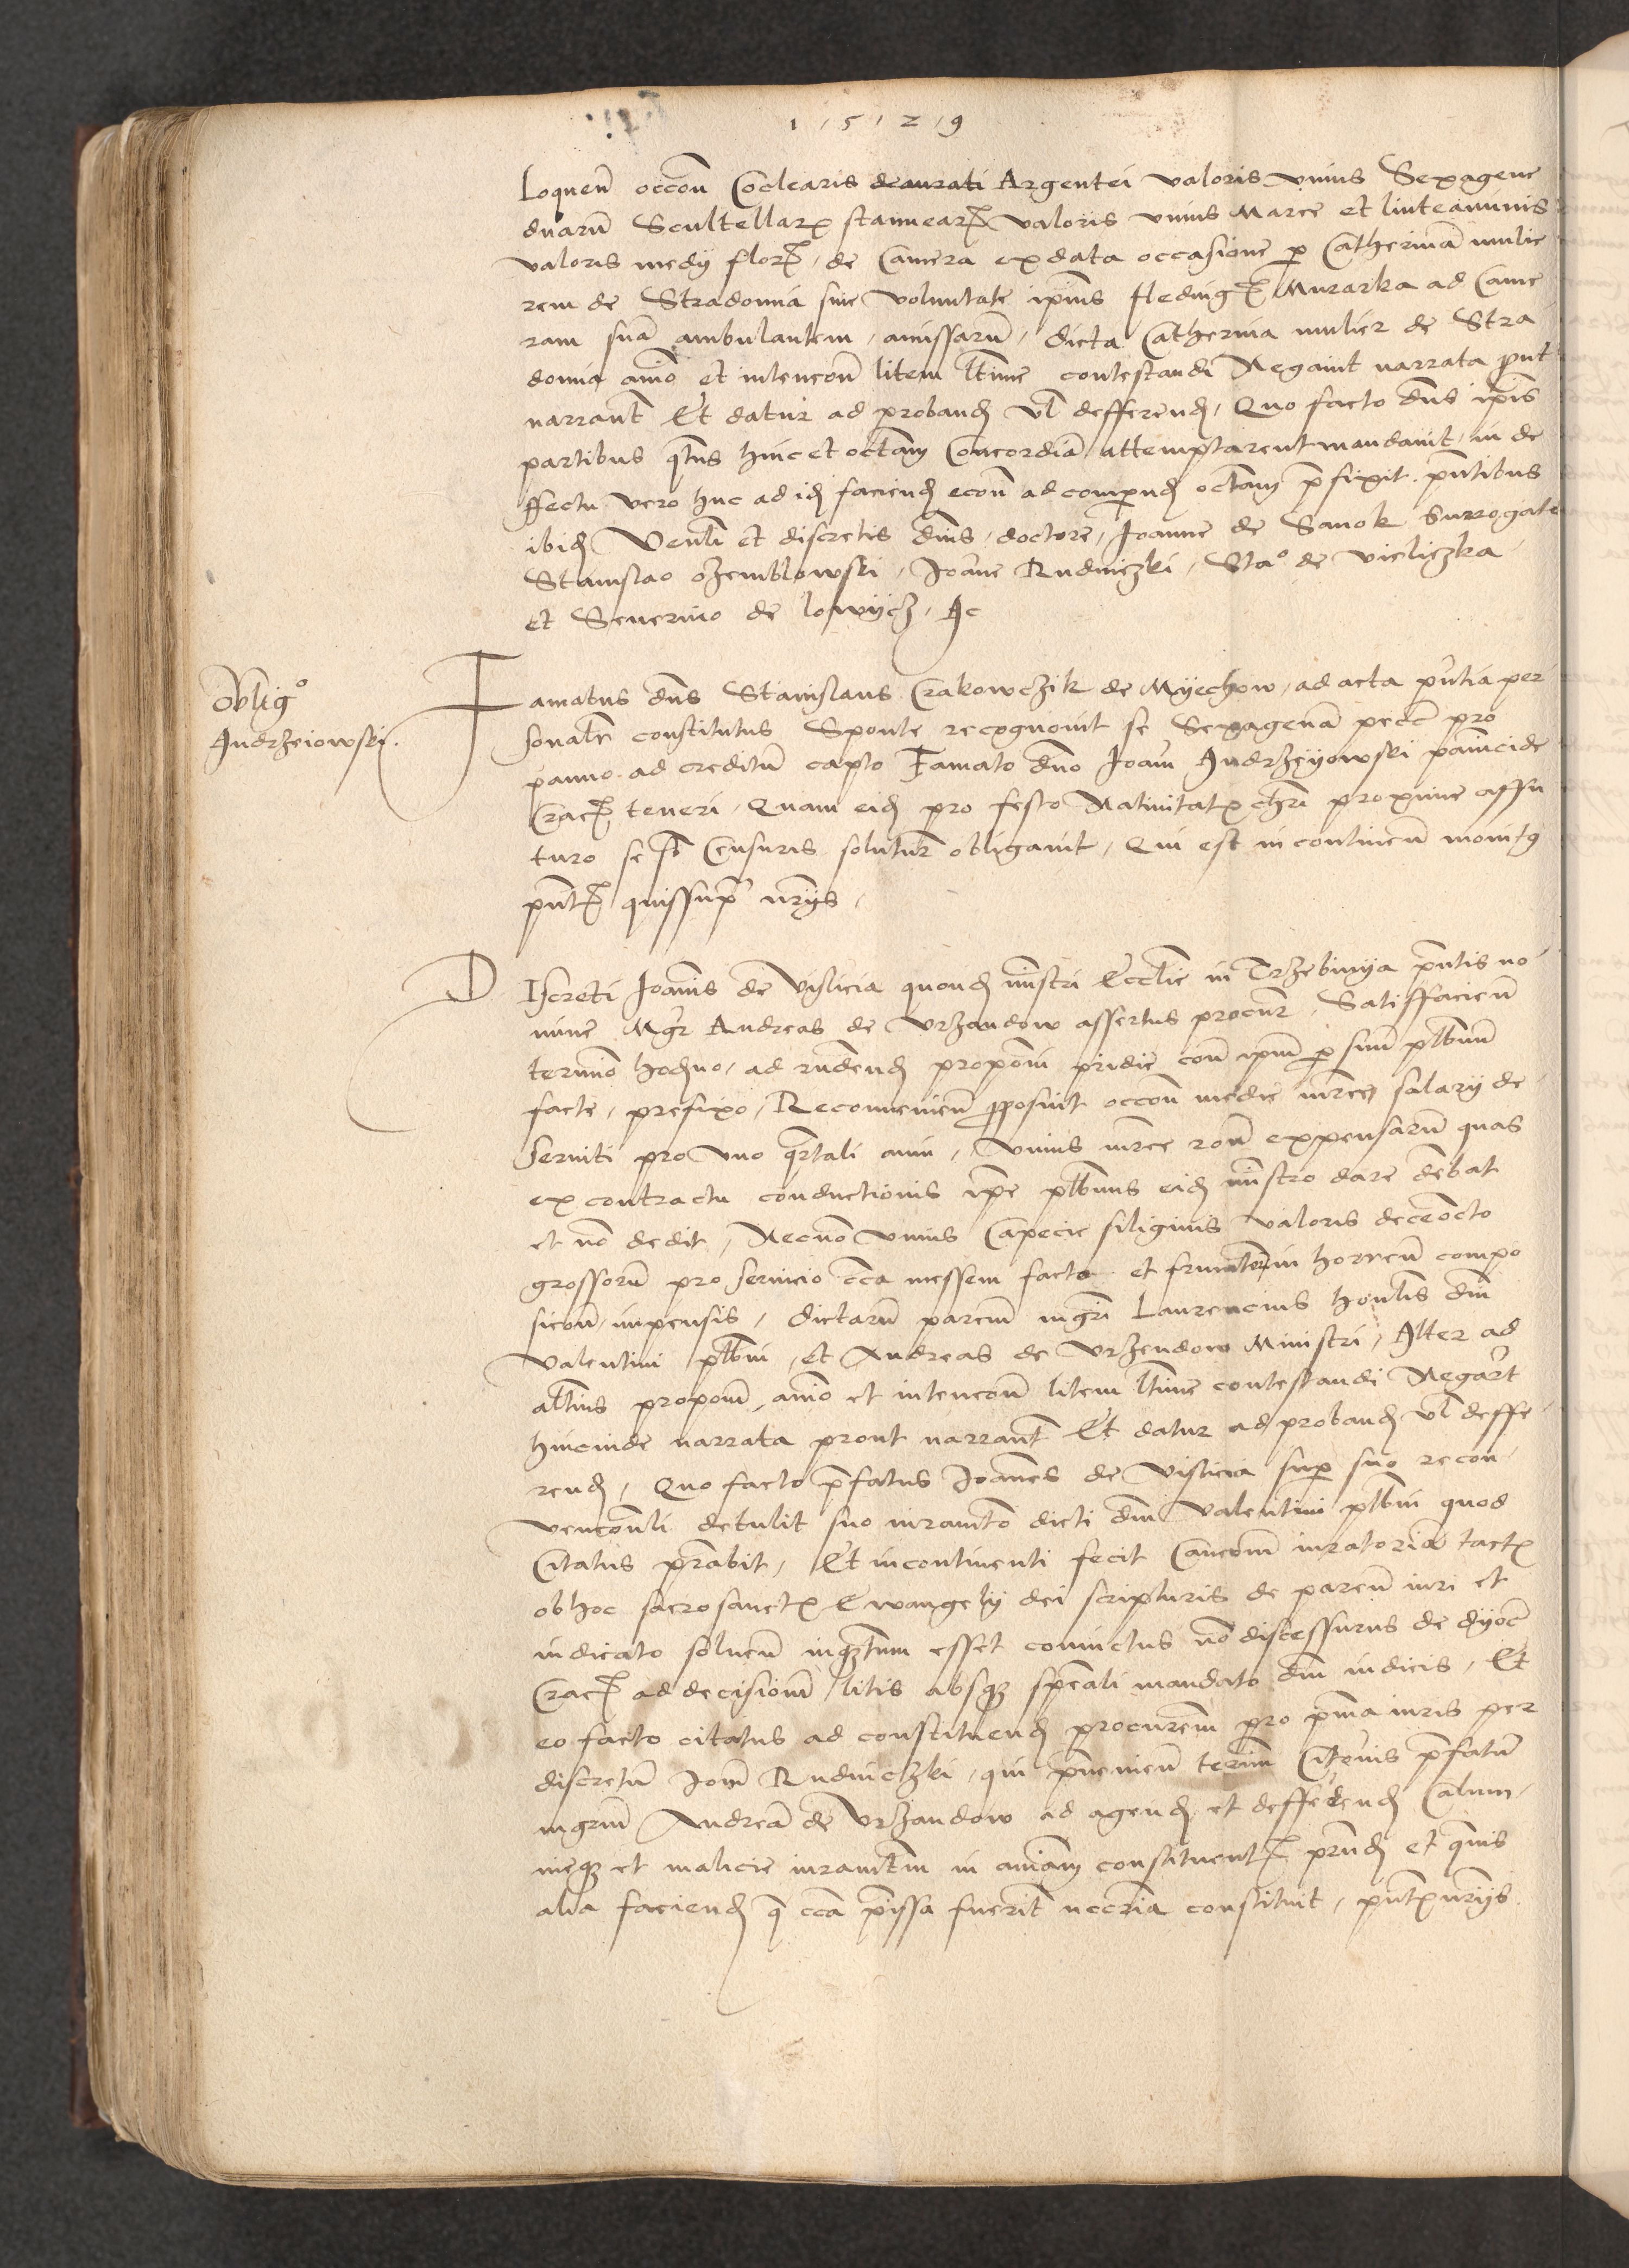 1 5 2 9
Loquen̄ occōn Coclearis deaurati Argentei valoris vnius Sexagene
duarū Scultellarꝝ stannearꝝ valoris vnius Marce et linteaminis
valoris medy florꝝ, de Camera exdata occasione ꝑ Catherinā mulie
rem de Stradomia sine voluntate ipius Hedwigꝭ Murarka ad Came
ram suā ambulantem, amissarū, dicta Catherina mulier de Stra
domia aīo et intencōn litem ltime contestandi Negauit narrata prout
narrant̄ Et datur ad proband vl̄ defferend, Quo facto dn̄s ip̄is
partibus qt̄us hinc et octām Concordiā attemptarent mandauit, in de
ffectu vero hinc ad id faciend econ̄ ad comparend octām p̄fixit. pn̄tibus
ibid Ven̄li et discretis dn̄is, doctore, Joanne de Sanok Surrogato
Stanislao Ozemblowski, Joāne Rudniczki, Sta° de vieliczka
et Seuerino de lowijcz, Ac
oblig°
Andrzeiowski.
Famatus dn̄s Stanislaus Crakowczik de Myechow, ad acta pn̄tia per
sonalr̄ constitutus Sponte recognouit se Sexagenā pecc̄ pro
panno ad creditū capto Famato dn̄o Joan̄ Andrzeyowski pānicide
Cracꝭ teneri, Quam eid pro festo Natiuitatꝭ chrī proxime affu
turo se sb̄ Censuris soluturū obligauit, Qui est in continen̄ monitꝰ
pn̄tꝭ quissupr̄ nr̄ijs,
Discreti Joān̄is de vislicia quond mīstri Eccl̄ie in Trzebinya pn̄tis no
mine Mgr̄ Andreas de Vrzandow assertus procur̄, Satisfacien̄
termīo hodierno, ad rn̄dend propōni pridie con̄ ip̄m ꝑ suū plb̄num
facte, prefixo, Reconuenien̄ proposuit occōn medie mr̄ce salary de
seruiti pro vno qr̄tali anni, vnius mr̄ce ron̄ expensarū quas
ex contractu conductionis ip̄e plb̄nus eid mīstro dare debat
et nō dedit, Necnō vnius Capecie siliginis valoris deceocto
grossorū pro seruicio cc̄a messem facto et frumentorū in horreū compo
sicōn, impensis, dictarū parciū mgr̄i Laurencius hon̄lis dn̄i
Valentini plb̄ni, et Andreas de Vrzendow Ministri, Alter ad
alt̄ius propōn, aīo et intencōn litem ltime contestandi Negar̄t
hincinde narrata prout narrant̄ Et datur ad proband vl̄ deffe
rend, Quo facto p̄fatus Joānes de Vislicia supr̄ suo recon
vencōnli detulit suo iuramto dicti dn̄i Valentini plb̄ni quod
Citatus prr̄abit, Et incontinenti fecit Caucōn iuratoriā tactꝭ
obhoc sacrosanctꝭ Ewangely dei scripturis de paren̄ iuri et
iudicato soluen̄ inqꝫtum esset conuictus nō discessurus de dyoc̄
Cracꝭ ad decisionē litis absqꝫ spēali mandato dn̄i iudicis, Et
eo facto citatus ad constituend procurem̄ pro pm̄a iuris per
discretū Joān̄ Rudniczki, qui pn̄uenien̄ termīn Citonis p̄fatū
mgrm̄ Andreā de Vrzandow ad agend et deffedend Calum
nieqꝫ et malicie iuramtm̄ in aīam constituentꝭ pr̄nd et qn̄uis
alia faciend q̄ cc̄a pm̄issa fuerīt nccr̄ia constituit, pn̄tꝭ nr̄ijs